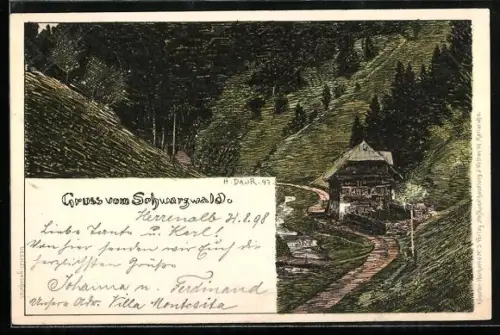 H. DAUR-97
Gruss vom Schwarzwald.
Herrenalb 21.8.98
Liebe Tante u. Karl!
Von hier senden wir Euch die
herzlichsten Grüße
Johanna u. Ferdinand
Unsere Adr. Villa Montesita